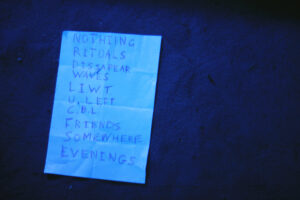 NOTHING
RITUALS
DISSAPEAR
WAVES
LIWT
U, LEFT
C.B.L
FRIENDS
SOMEWHERE
EVENINGS